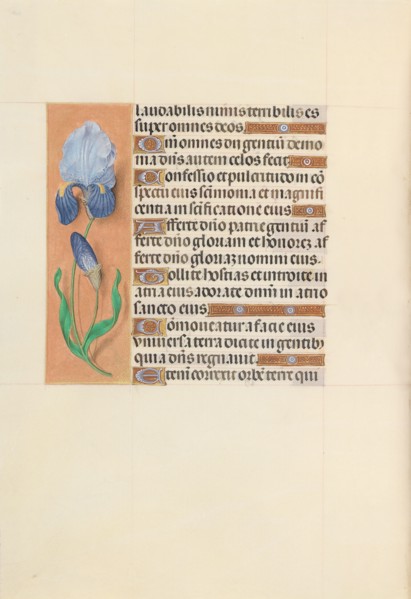 laudabilis nimis terribilis es
super omnes deos.
Qm̄ omnes dii gentiū demo
nia dn̄s autem celos fecit.
Confessio et pulcritudo in cō
spectu eius sc̄imonia et magnifi
centia in sc̄ificatione eius
Afferte dn̄o patrie gentiū af
ferte dn̄o gloriam et honorez af
ferte dn̄o gloriaz nomini eius.
Tollite hostias et introite in
atria eius adorate dn̄m in atrio
sancto eius
Cōmoueatur a facie eius
vniuersa terra dicite in gentibꝫ
quia dn̄s regnauit.
Etenī correxit orbē terre qui